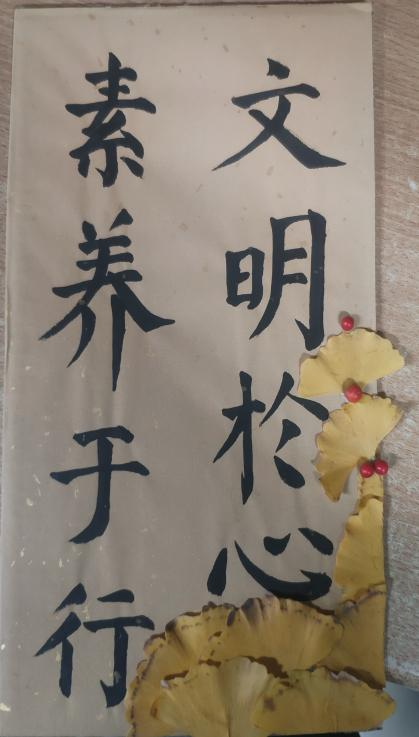 文明於心
素养于行